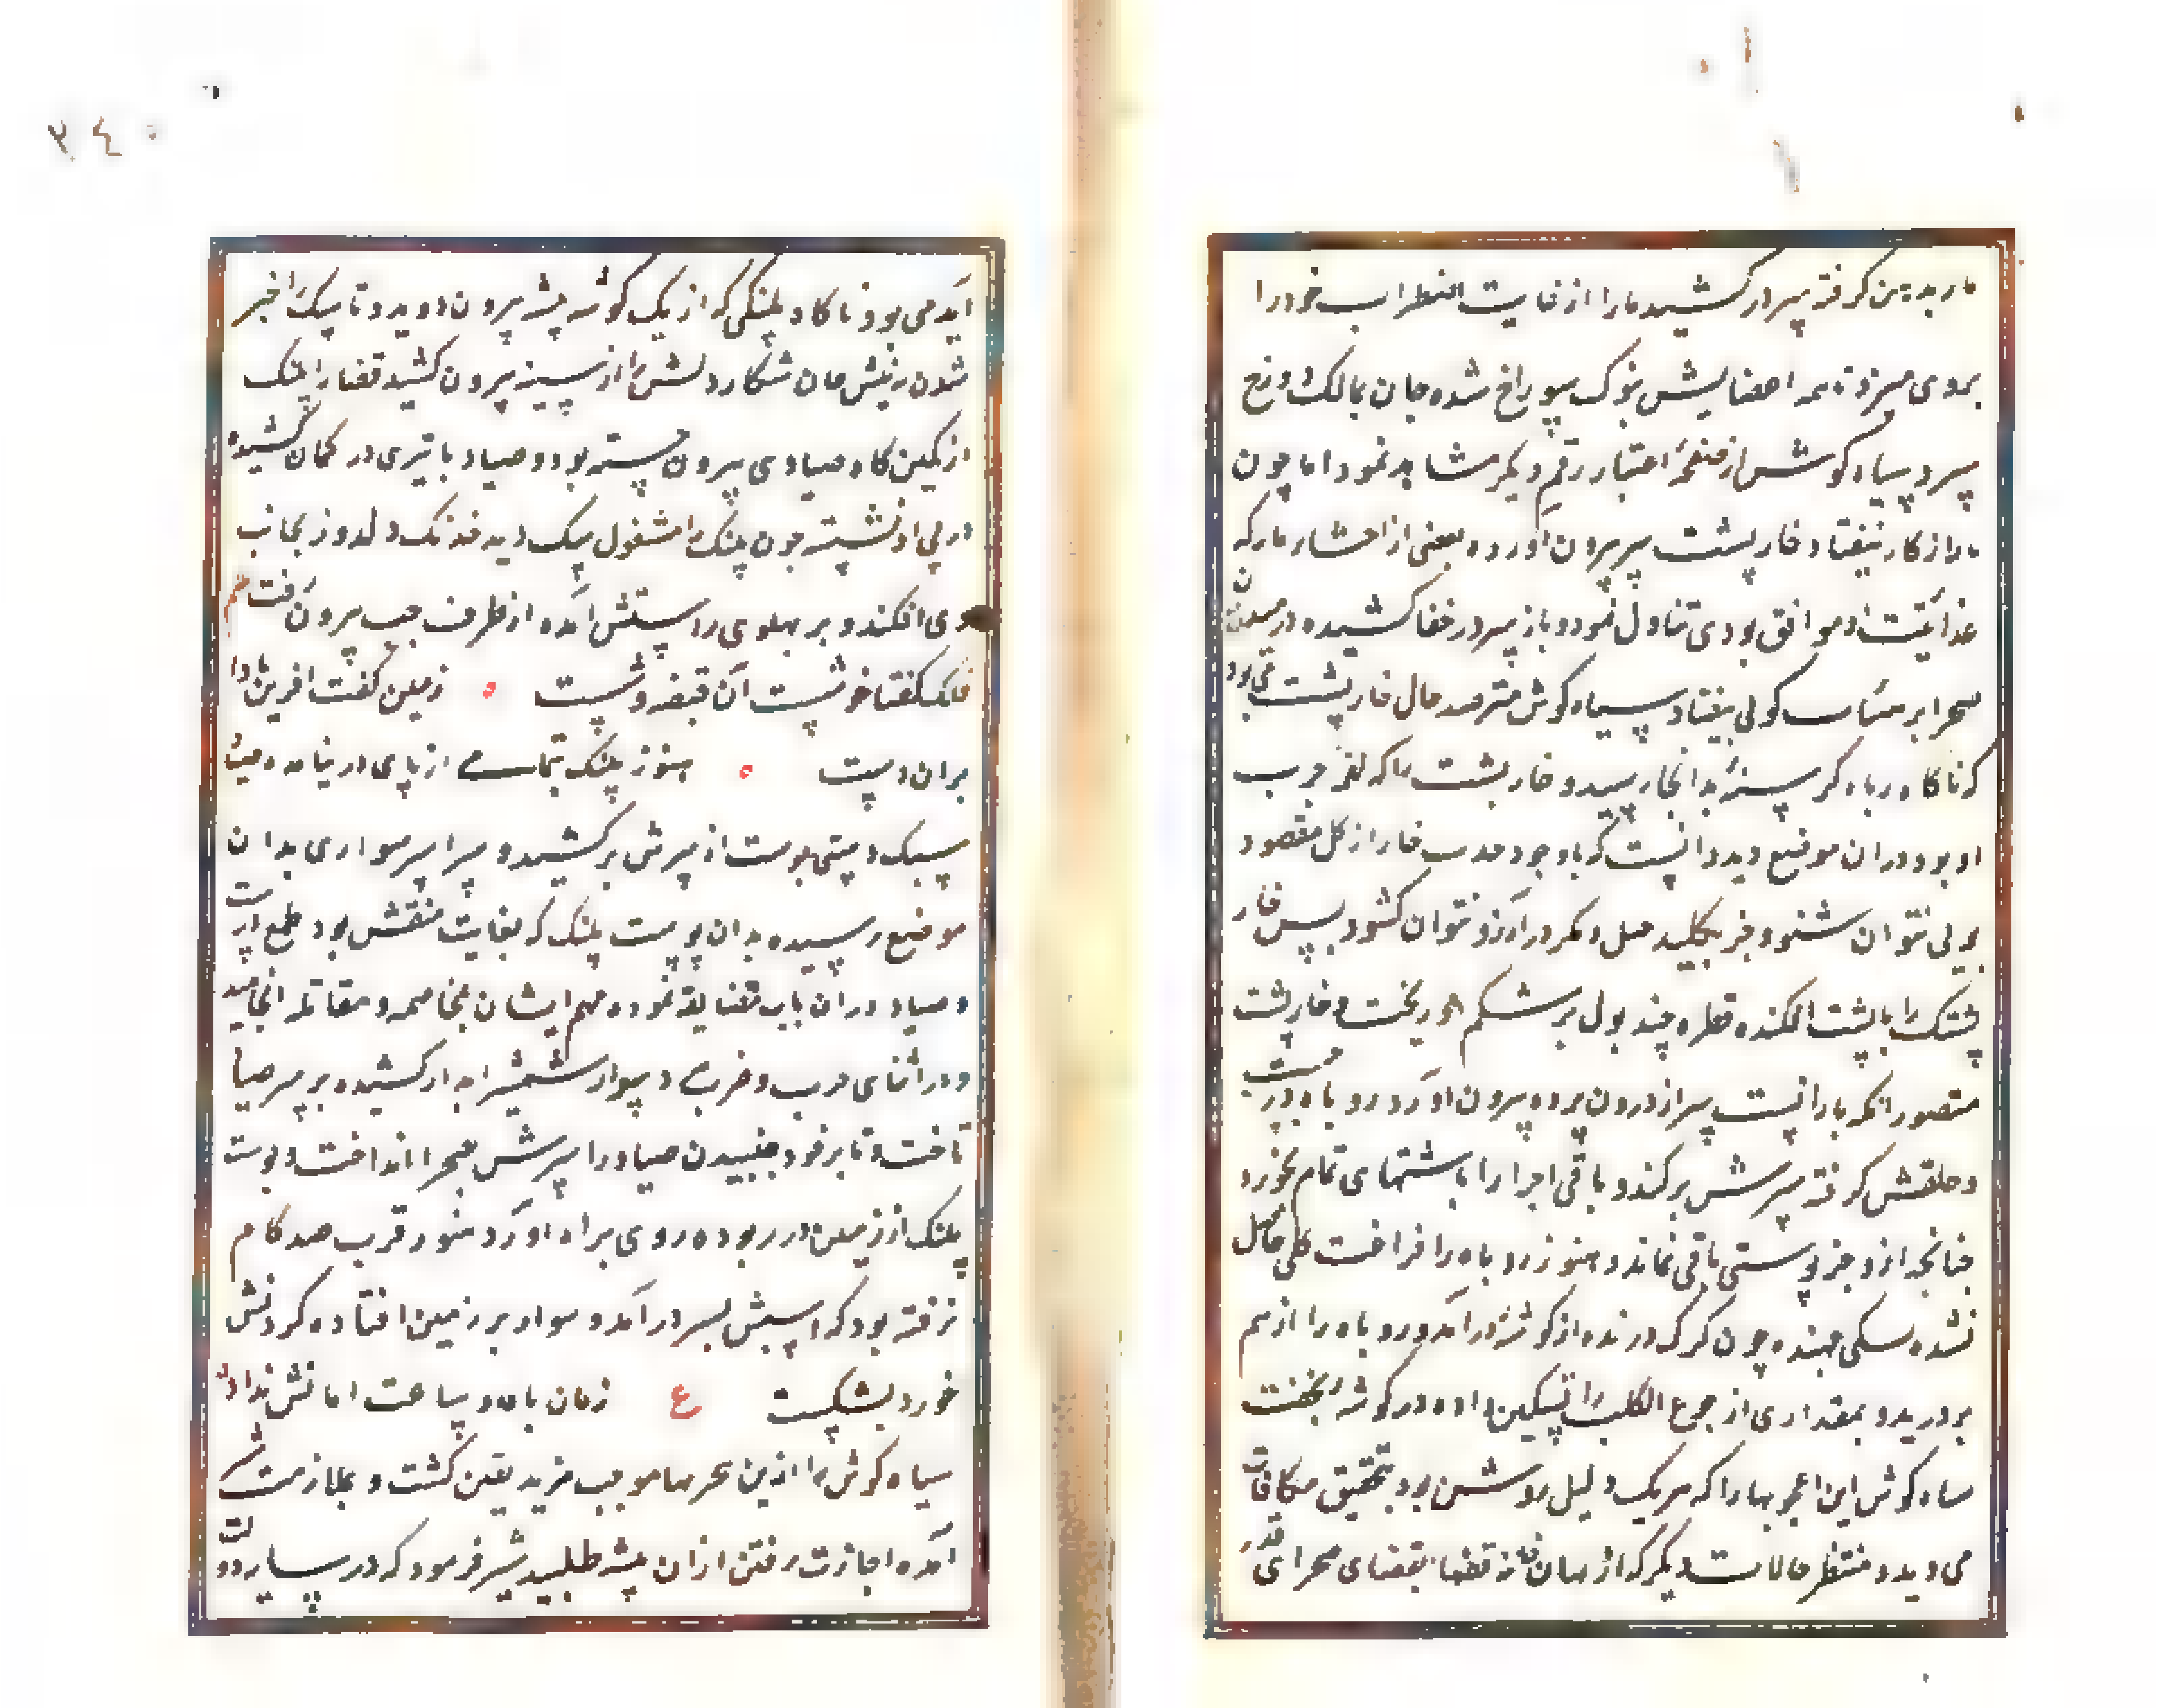 مار بدهن کرفته سر درکشید مار از غایت اضطراب خود را
بروی میزد تا همه اعضایش بنوک سوراخ شده جان بمالک دوزخ
سپرد سیاه کوش از صفحهٔ اعتبار رقم دیکر مشاهد نمود اما چون
مار از کار بیفتاد خارپشت سر بیرون آورده بعضی از احشار مار که
غذائیت او موافق بودی تناول نمود و باز سر در خفا کشیده در میدان
صحرا بر مثال کوئی بیفتاد سیاه کوش مترصد حال خارپشت می بود
که ناکاه روباه کرسنهٔ بدانجا رسید و خارپشت را که لقمه چرب
او بود در ان موضع دید دانست که باوجود حدت خار از کل مقصود
بوئی نتوان شنود و جز بکلید حیل و مکر در آرزو نتوان کشود پس خار
پشتک را با پشت افکنده قطره چند بول بر شکم او ریخت و خارپشت
متصور انکه بارانست سر از درون پرده بیرون آورد روباه برجست
و حلقش کرفته سرش برکند و باقی اجزا را باشتهای تمام بخورد
چنانچه ازو جز پوستی باقی نماند و هنوز روباه را فراغت کلی حاصل
نشده سکی جهنده چون کرک درنده از کوشهٔ درآمد و روباه را از هم
بردرید و بمقداری از جوع الکلب را تسکین داده در کوشهٔ بخفت
سیاه کوش این اعجوبها را که هریک دلیل روشن بود بتحقیق مکافات
می دید و منتظر حالات دیکر که از نهان خانه قضا بفضای صحرای قدر
۳٤۰
آید می بود ناکاه پلنکی که از یک کوشه بیشه بیرون دوید و تا سک را خبر
شدن ریشش همان شکار دلش را از سینه بیرون کشید قضا را پلنک
از کمین کاه صیادی بیرون جسته بود و صیاد با تیری در کمان کشیده
در پی او نشسته چون پلنک را مشغول سک دید خدنک دلدوز بجانب
وی افکند و بر پهلوی راستش آمده از طرف چپ بیرون رفت نظم
فلک کفتا خوشست آن قبضه و شست زمین کفت افرین باد
بران دست هنوز پلنک بتمامی از پای در نیامده صیاد
سبکدستی پوست از سرش برکشید و سراسر سواری بدان
موضع رسیده بدان پوست پلنک که بغایت منقش بود طمع در بست
و صیاد در ان باب مضایقه نموده مهم ایشان بمخاصمه و مقاتله انجامید
و در اثنای حرب و ضرب سوار شمشیر ابدار کشیده بر سر صیاد
تاخت و تا بر خود جنبیدن صیاد را سرش بصحرا انداخت و پوست
پلنک از زمین در ربوده روی براه آورد هنوز قرب صد کام
نرفته بود که اسپش بسر درآمد و سوار بر زمین افتاده کردنش
خورد بشکست ع زمان باو و ساعت امانش نداد
سیاه کوش را این تجربها موجب مزید یقین کشت و بملازمت شیر
آمده اجازت رفتن از ان بیشه طلبید شیر فرمود که در سایه دولت